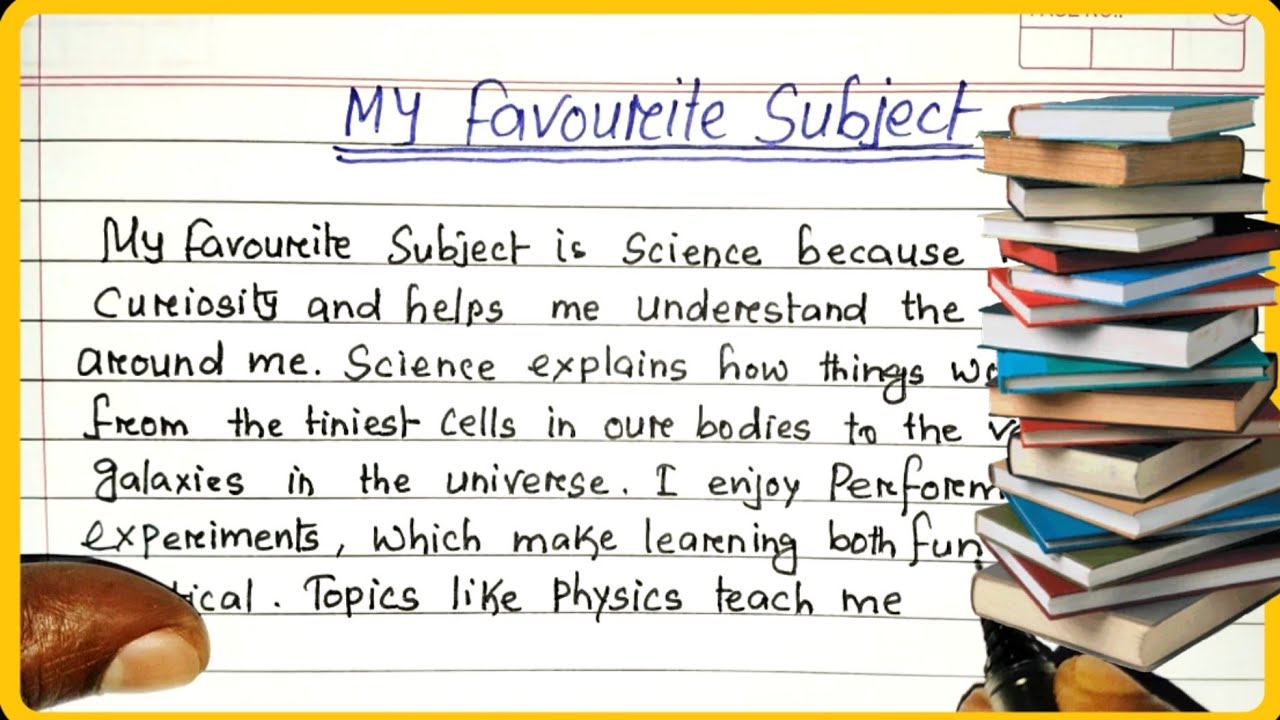 PAGE NO.:
My Favourite Subject
My favourite Subject is Science because
Curiosity and helps me understand the
around me. Science explains how things
from the tiniest cells in our bodies to the
galaxies in the universe. I enjoy
experiments, which make learning both fun
Topics like Physics teach me